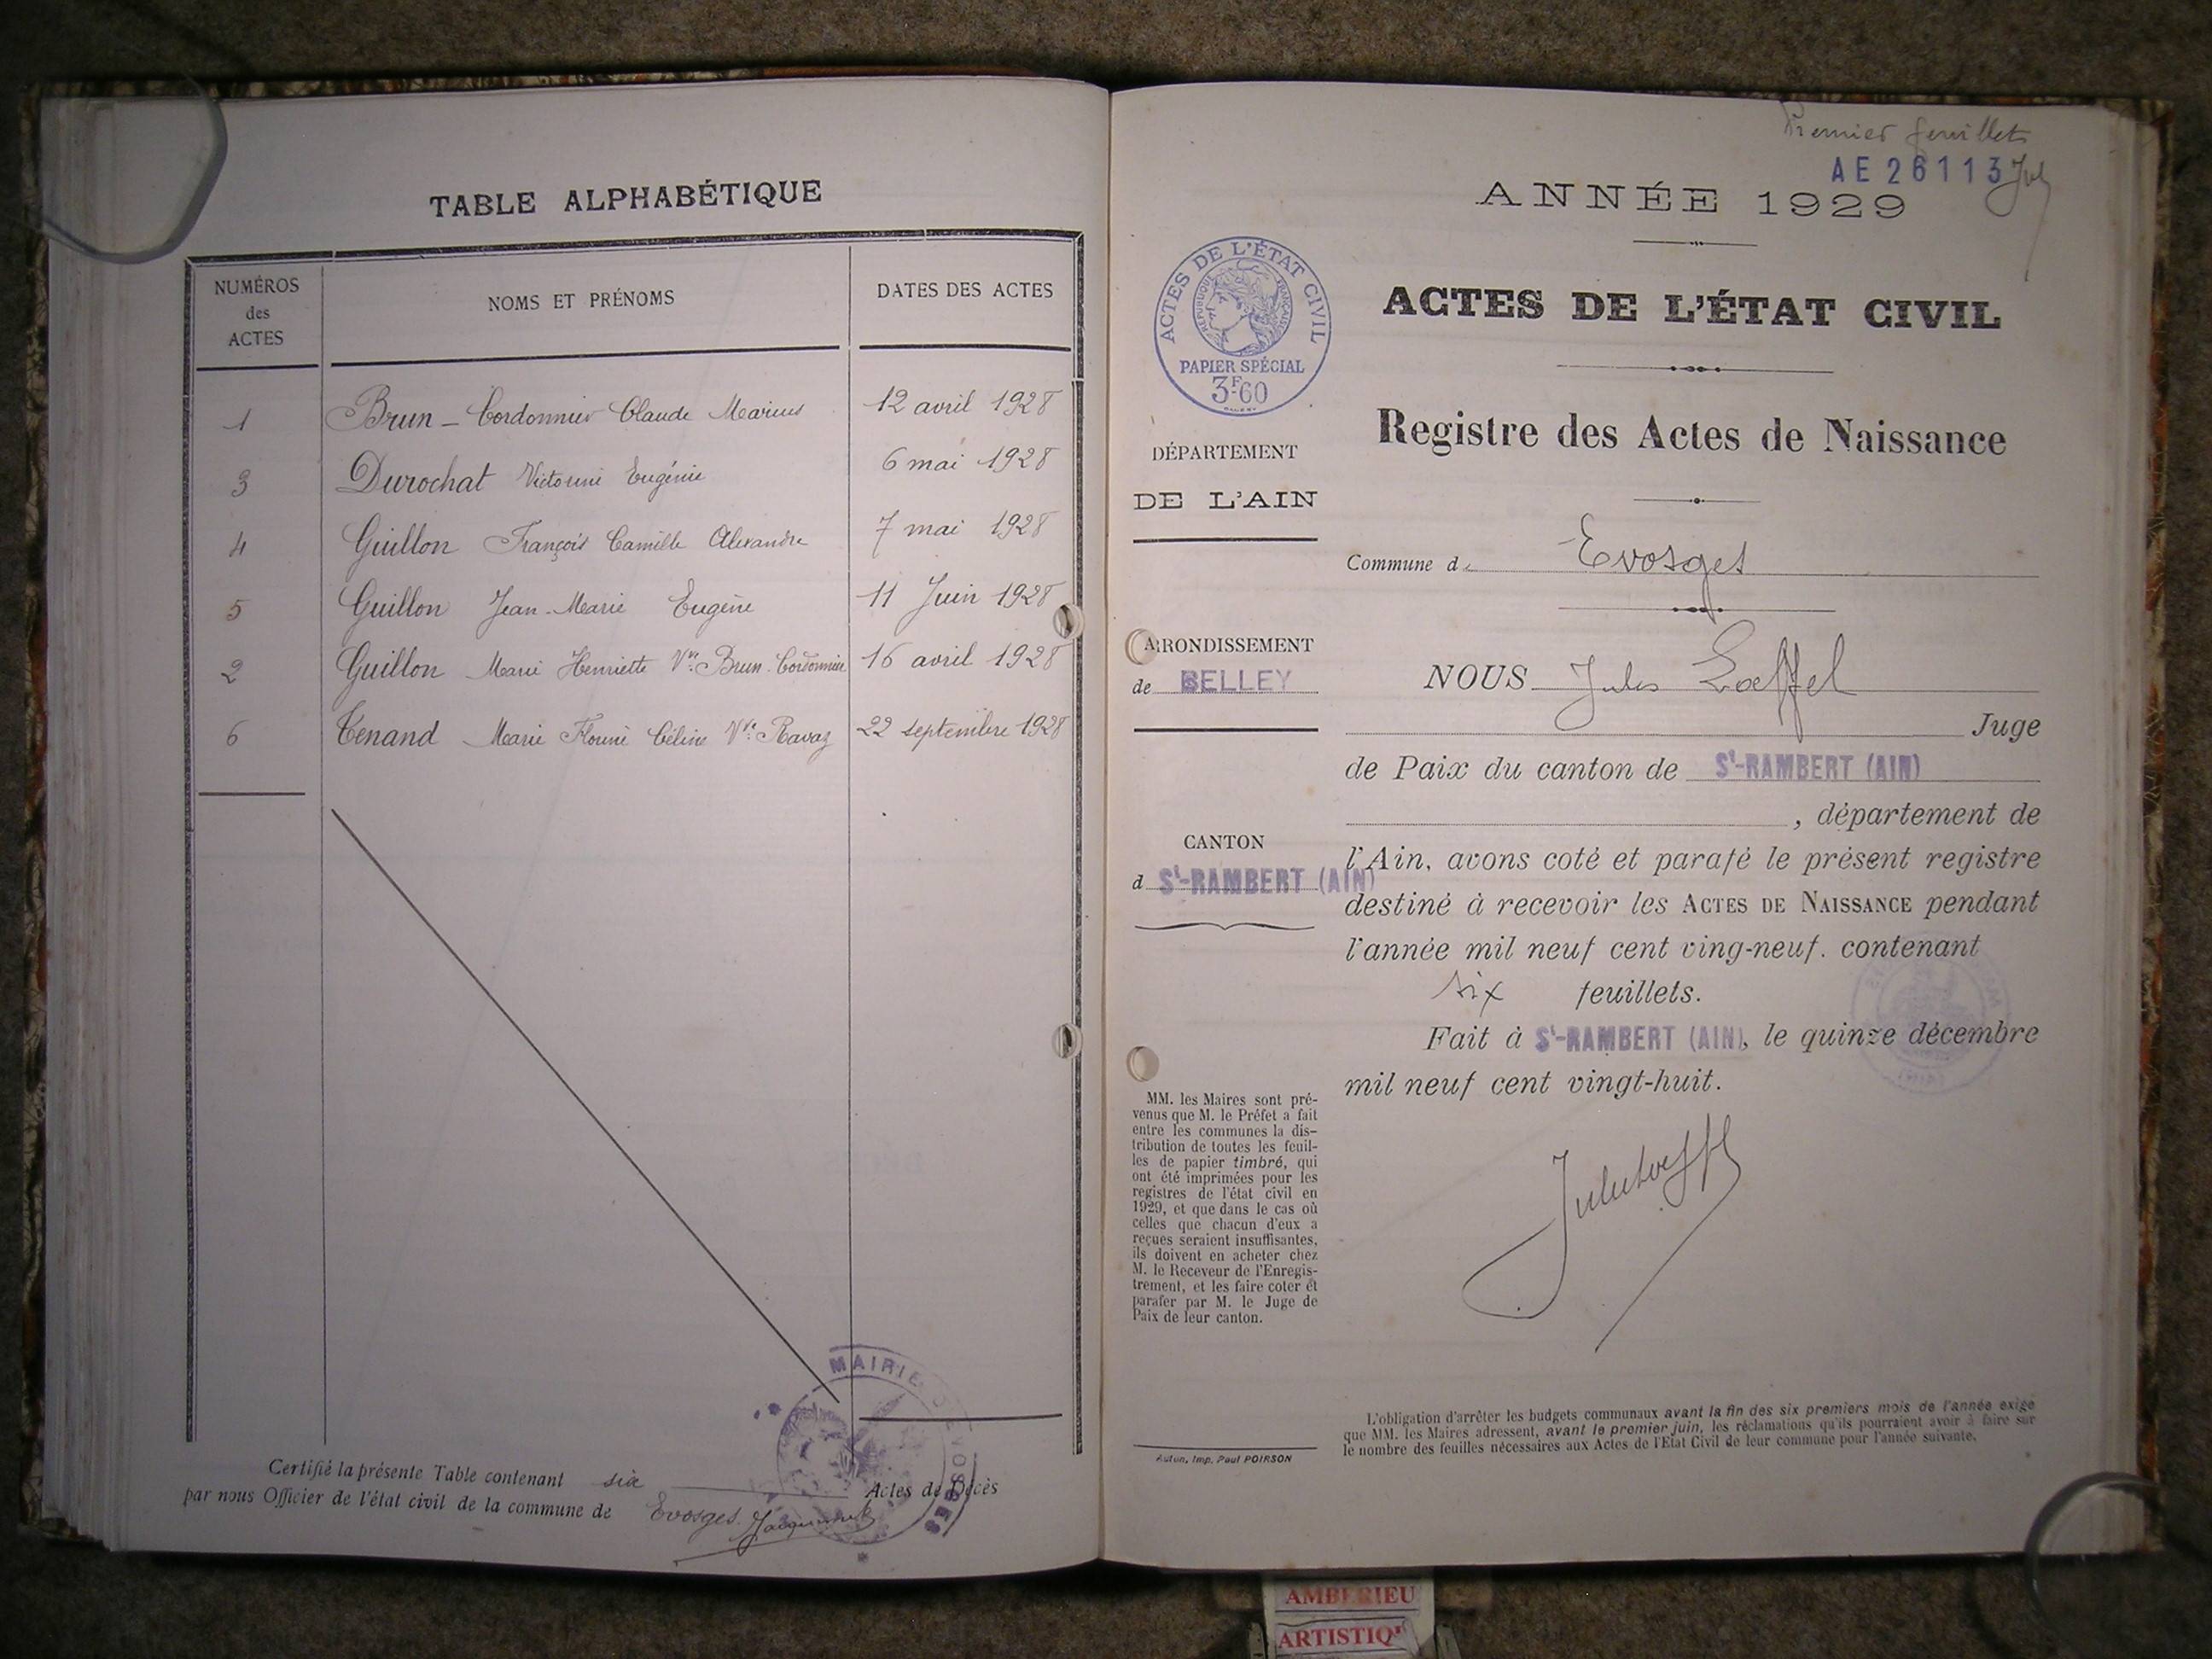 TABLE ALPHABÉTIQUE
NUMÉROS des ACTES
NOMS ET PRÉNOMS
DATES DES ACTES
1 Brun - Cordonnier Claude Marius 12 avril 1928
3 Durochat Victorine Eugénie 6 mai 1928
4 Guillon François Camille Alexandre 7 mai 1928
5 Guillon Jean-Marie Eugène 11 Juin 1928
2 Guillon Marie Henriette Vve Brun-Cordonnier 16 avril 1928
6 Tenand Marie Florine Céline Vve Ravaz 22 septembre 1928
MAIRIE D'EVOSGES
Certifié la présente Table contenant six Actes de Décès
par nous Officier de l'état civil de la commune de Evosges
Premier feuillet
AE 26113
ANNÉE 1929
ACTES DE L'ÉTAT CIVIL
RÉPUBLIQUE FRANÇAISE
PAPIER SPÉCIAL
3F60
ACTES DE L'ÉTAT CIVIL
Registre des Actes de Naissance
DÉPARTEMENT
DE L'AIN
Commune d Evosges
ARRONDISSEMENT
de BELLEY
NOUS Jules Loeffel
Juge
de Paix du canton de St-RAMBERT (AIN)
, département de
CANTON
d St-RAMBERT (AIN)
l'Ain, avons coté et parafé le présent registre
destiné à recevoir les ACTES DE NAISSANCE pendant
l'année mil neuf cent ving-neuf. contenant
six feuillets.
Fait à St-RAMBERT (AIN), le quinze décembre
mil neuf cent vingt-huit.
MM. les Maires sont pré-
venus que M. le Préfet a fait
entre les communes la dis-
tribution de toutes les feuil-
les de papier timbré, qui
ont été imprimées pour les
registres de l'état civil en
1929, et que dans le cas où
celles que chacun d'eux a
reçues seraient insuffisantes,
ils doivent en acheter chez
M. le Receveur de l'Enregis-
trement, et les faire coter et
parafer par M. le Juge de
Paix de leur canton.
Autun, Imp. Paul POIRSON
L'obligation d'arrêter les budgets communaux avant la fin des six premiers mois de l'année exige
que MM. les Maires adressent, avant le premier juin, les réclamations qu'ils pourraient avoir à faire sur
le nombre des feuilles nécessaires aux Actes de l'Etat Civil de leur commune pour l'année suivante.
AMBERIEU
ARTISTIQ